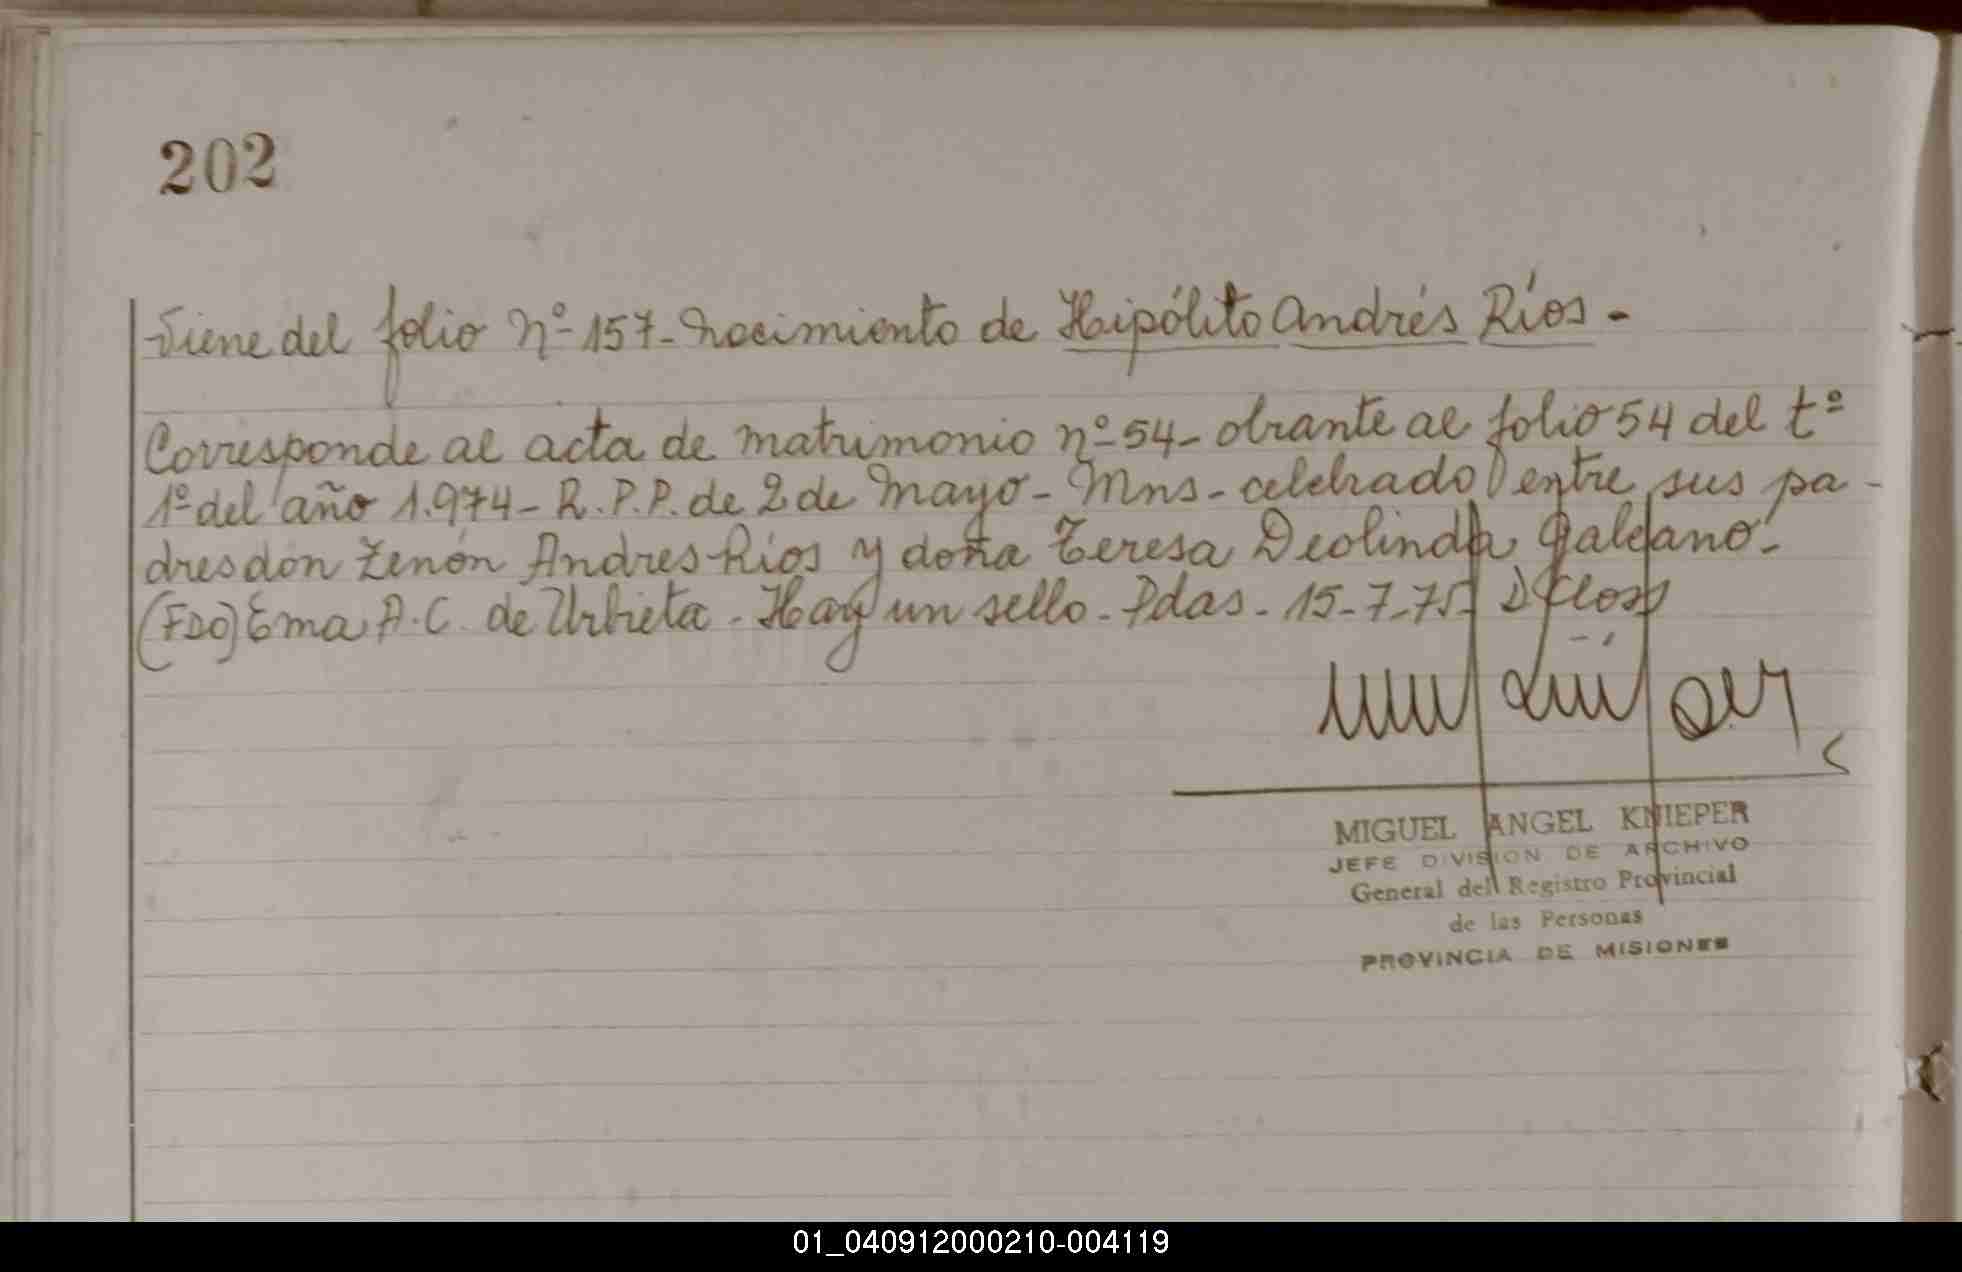 202
Viene del folio Nº 157- Nacimiento de Hipólito Andrés Ríos -
Corresponde al acta de matrimonio nº 54- obrante al folio 54 del tº
1º del año 1.974- R.P.P. de 2 de Mayo - Mns - celebrado entre sus pa-
dres don Zenón Andres Rios y doña Teresa Deolinda Galeano.-
(FDO) Ema A.C. de Urbieta - Hay un sello - Pdas - 15-7-75-
MIGUEL ANGEL KNIEPER
JEFE DIVISION DE ARCHIVO
General del Registro Provincial
de las Personas
PROVINCIA DE MISIONES
01_040912000210-004119